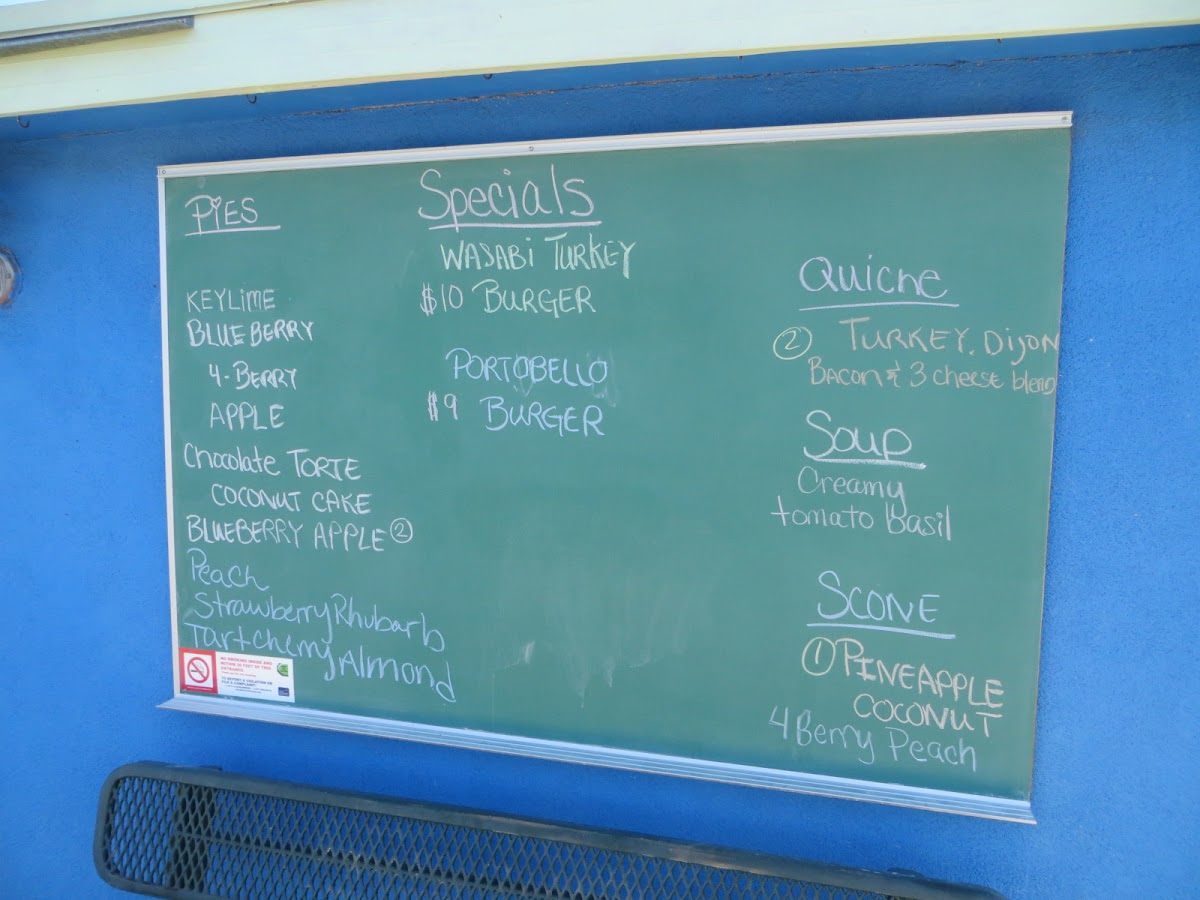 PiES
KEYLiME
BLUEBERRY
4-BERRY
APPLE
Chocolate TORTE
COCONUT CAKE
BLUEBERRY APPLE ②
Peach
Strawberry Rhubarb
Tart Cherry Almond
Specials
WASABi TURKEY
$10 BURGER
PORTOBELLO
$9 BURGER
Quiche
② TURKEY, Dijon
BACON & 3 cheese blend
Soup
Creamy
tomato Basil
SCONE
① PINEAPPLE
COCONUT
4 Berry Peach